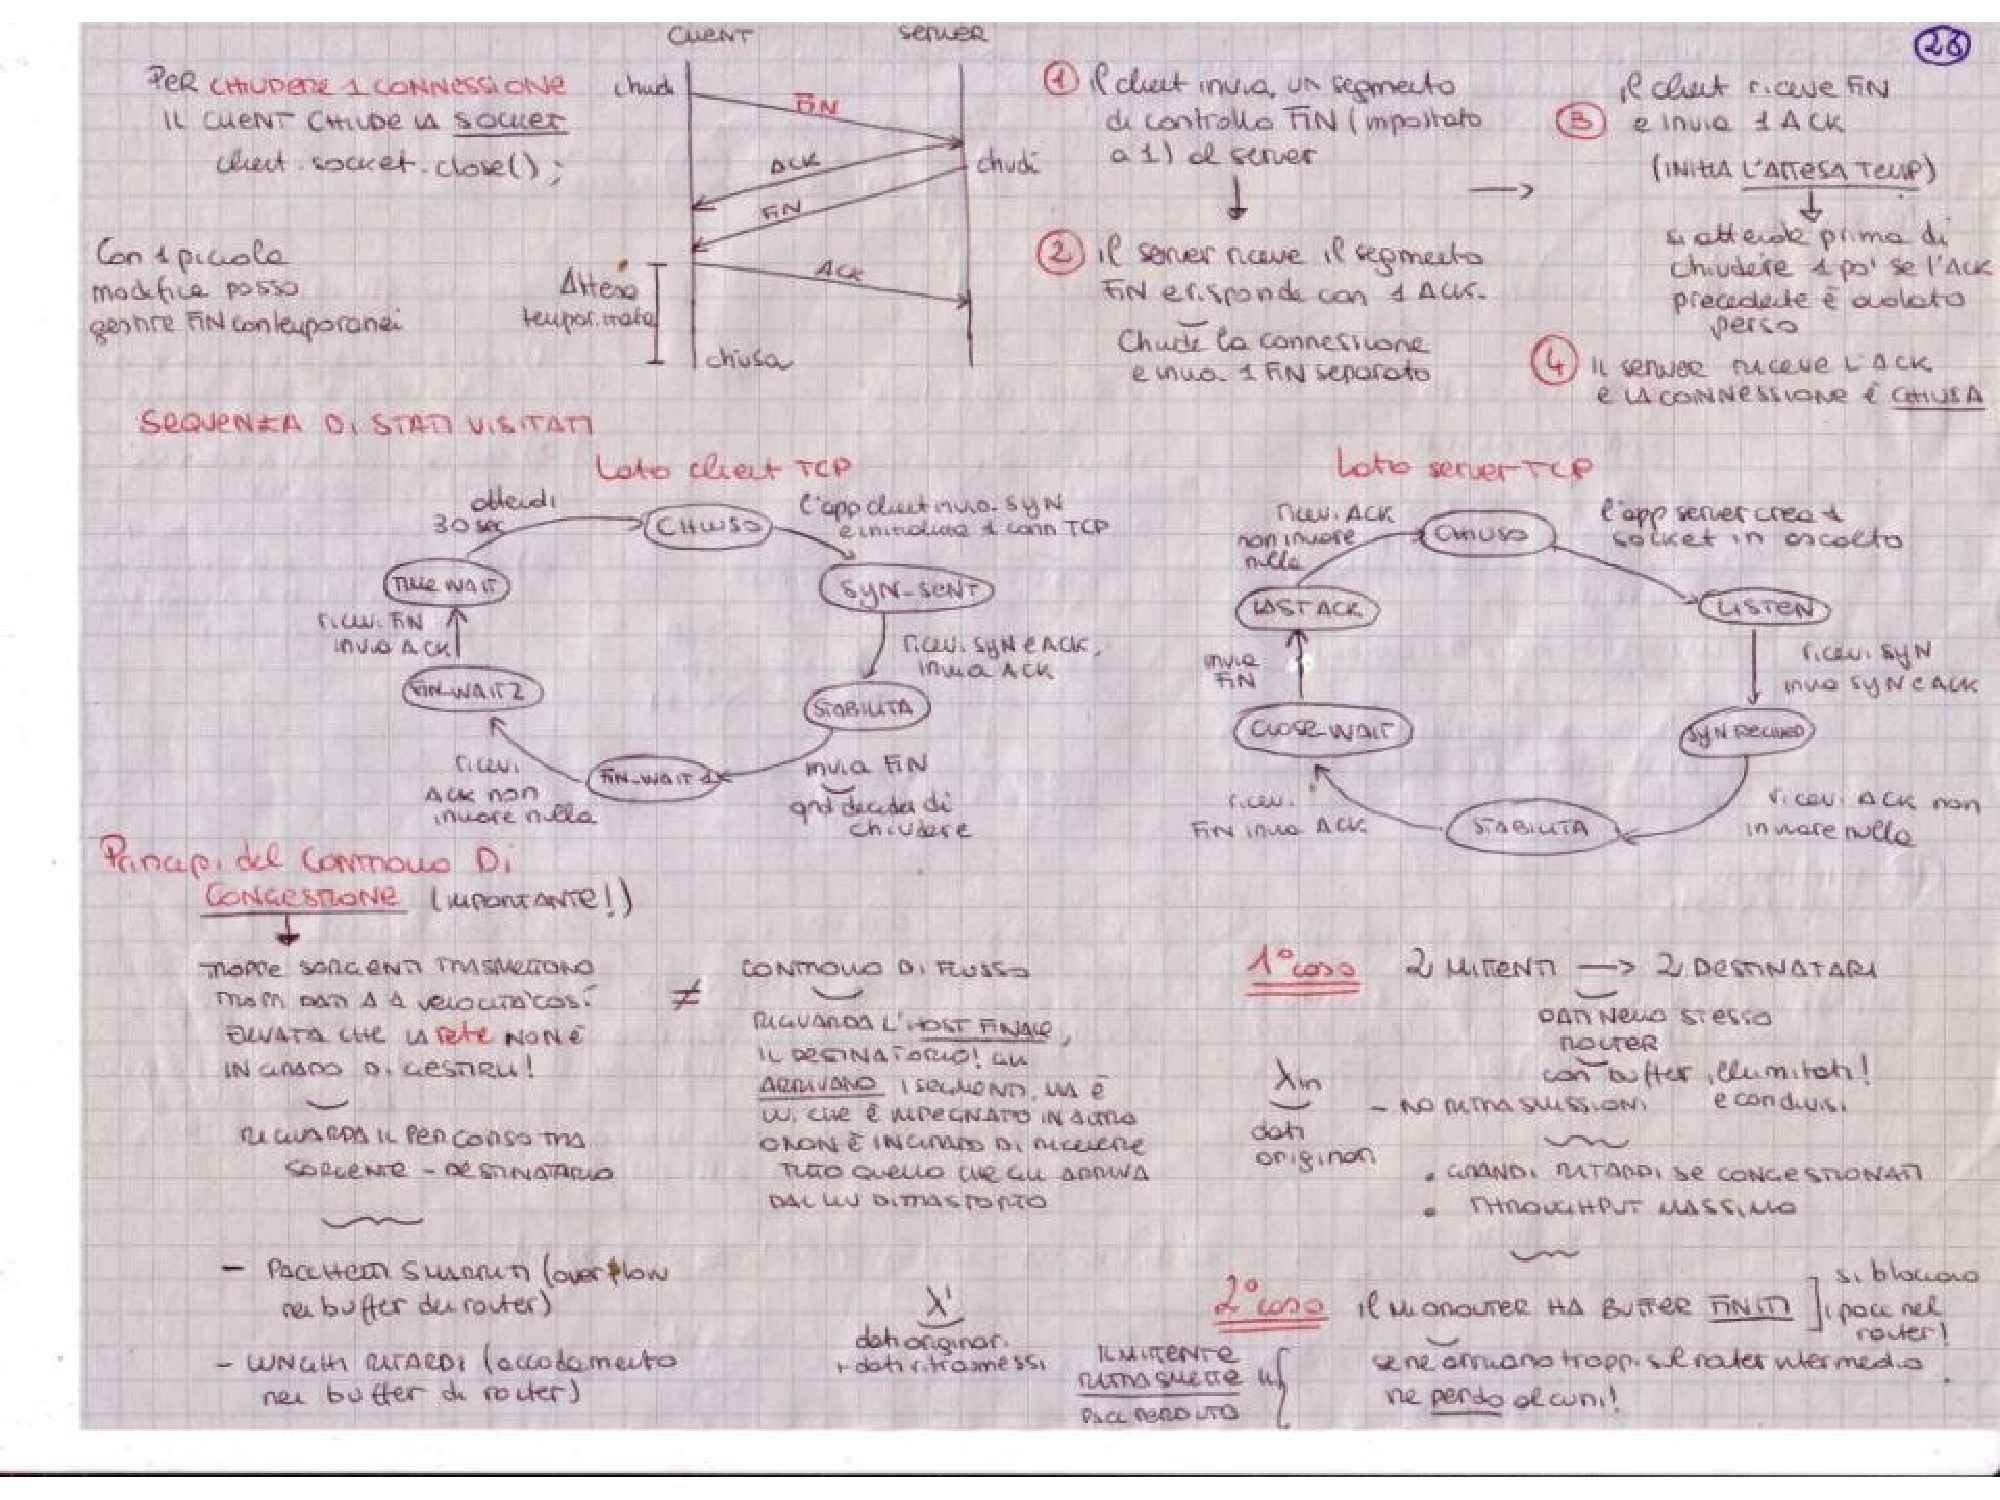 26
PER CHIUDERE 1 CONNESSIONE
IL CLIENT CHIUDE LA SOCKET
client.socket.close();
Con 1 piccola
modifica posso
gestire FIN contemporanei
CLIENT
SERVER
chiudi
FIN
ACK
chiudi
FIN
ACK
Attesa
temporizzata
chiusa
1 Il client invia un segmento
di controllo FIN (impostato
a 1) al server
2 il server riceve il segmento
FIN e risponde con 1 ACK.
Chiude la connessione
e invia 1 FIN separato
il client riceve FIN
3 e invia 1 ACK
(INIZIA L'ATTESA TEMP)
si attende prima di
chiudere 1 po' se l'ACK
precedente è andato
perso
4 IL SERVER RICEVE L'ACK
E LA CONNESSIONE È CHIUSA
SEQUENZA DI STATI VISITATI
Lato client TCP
attendi
30 sec
CHIUSO
l'app client invia SYN
e inizializza 1 conn TCP
TIME WAIT
SYN_SENT
ricevi FIN
invia ACK
ricevi SYN e ACK,
invia ACK
FIN_WAIT2
STABILITA
ricevi
ACK non
inviare nulla
FIN_WAIT 1
invia FIN
qnd decidi di
chiudere
Lato server TCP
ricevi ACK
non inviare
nulla
CHIUSO
l'app server crea 1
socket in ascolto
LAST ACK
LISTEN
invia
FIN
ricevi SYN
invia SYN e ACK
CLOSE_WAIT
SYN RECEIVED
ricevi
FIN invia ACK
STABILITA
ricevi ACK non
inviare nulla
Principi del CONTROLLO DI
CONGESTIONE (IMPORTANTE!)
TROPPE SORGENTI TRASMETTONO
TROPPI DATI A 1 VELOCITA' COSÌ
ELEVATA CHE LA RETE NON È
IN GRADO DI GESTIRLI!
RIGUARDA IL PERCORSO TRA
SORGENTE - DESTINATARIO
- PACCHETTI SMARRITI (overflow
nei buffer dei router)
- LUNGHI RITARDI (accodamento
nei buffer di router)
≠
CONTROLLO DI FLUSSO
RIGUARDA L'HOST FINALE,
IL DESTINATARIO! GLI
ARRIVANO I SEGMENTI, MA È
LUI CHE È IMPEGNATO IN ALTRO
O NON È IN GRADO DI RICEVERE
TUTTO QUELLO CHE GLI ARRIVA
DAL
λ'
dati originari
+ dati ritrasmessi
1° caso 2 MITTENTI → 2 DESTINATARI
DATI NELLO STESSO
ROUTER
con buffer illimitati!
e condivisi
λin
dati
originari
- NO RITRASMISSIONI
• GRANDI RITARDI SE CONGESTIONATI
• THROUGHPUT MASSIMO
2° caso il MIO ROUTER HA BUFFER FINITI
si bloccano
i pacc nel
router!
se ne arrivano troppi sul router intermedio
ne perdo alcuni!
IL MITTENTE
RITRASMETTE il
PACC PERDUTO